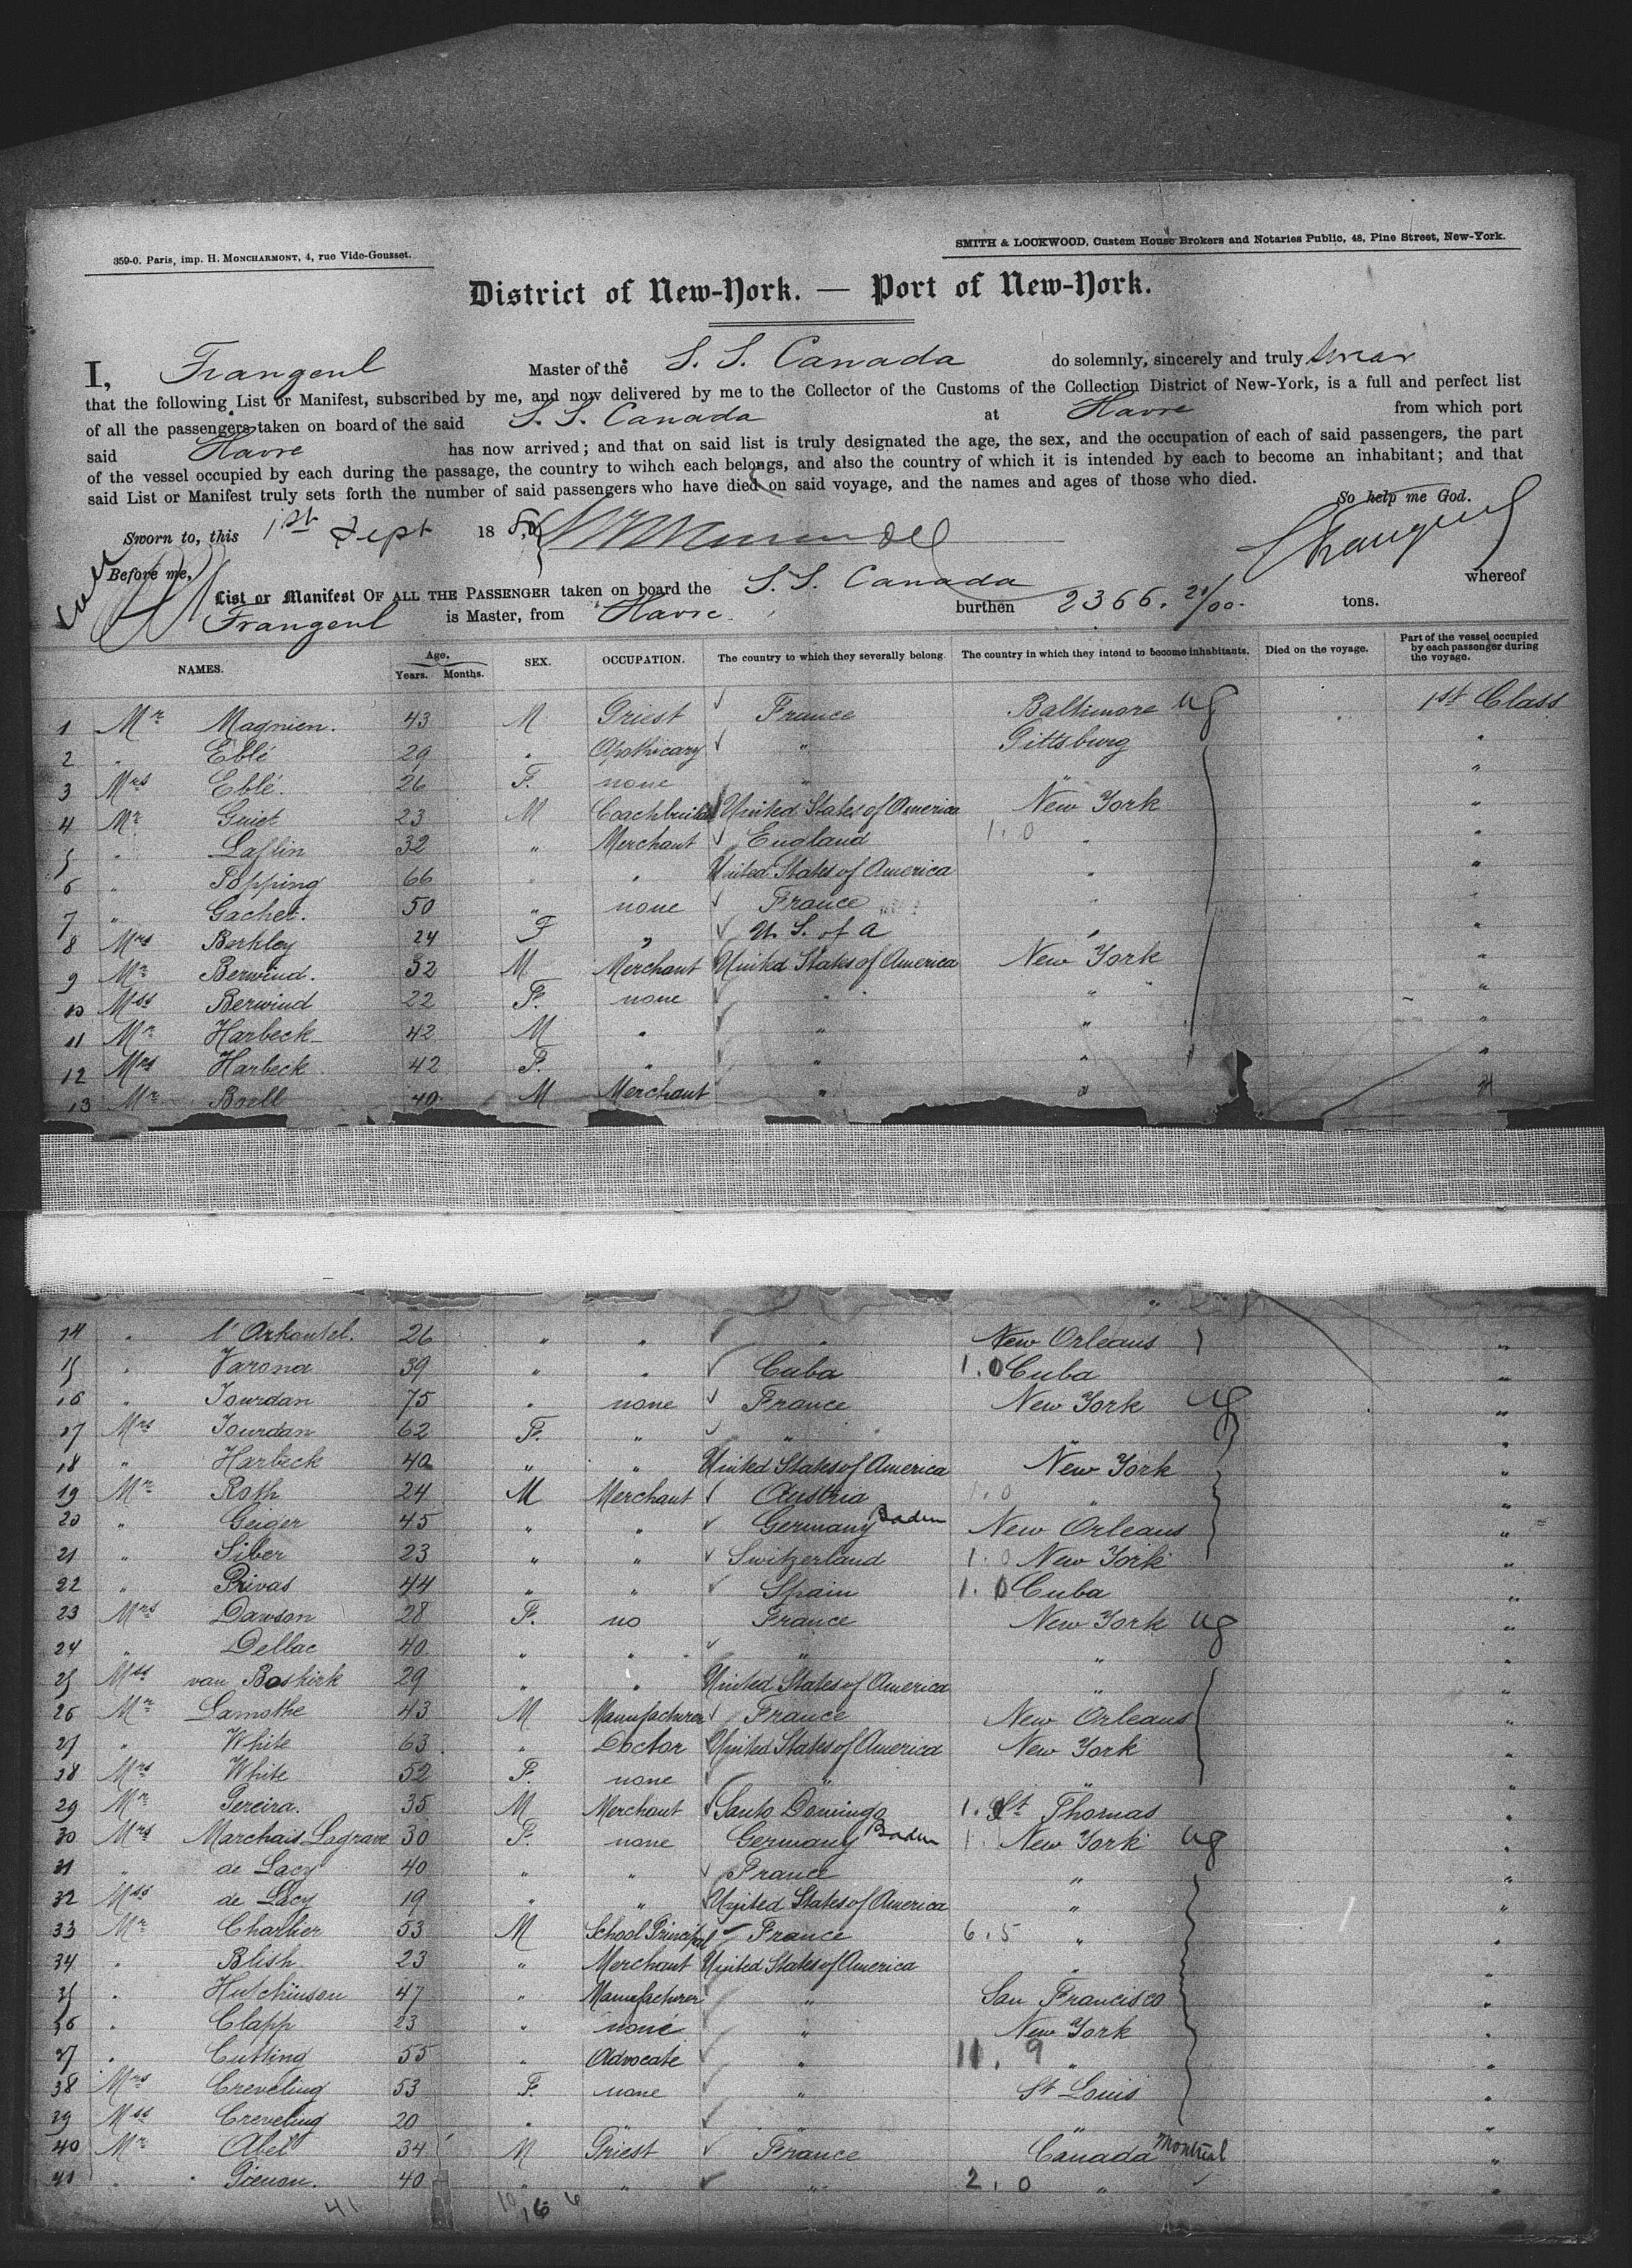 359-0. Paris, imp. H. MONCHARMONT, 4, rue Vide-Gousset.
SMITH & LOCKWOOD, Custom House Brokers and Notaries Public, 48, Pine Street, New-York.
District of New-York. — Port of New-York.
I, Frangeul Master of the S. S. Canada do solemnly, sincerely and truly swear
that the following List or Manifest, subscribed by me, and now delivered by me to the Collector of the Customs of the Collection District of New-York, is a full and perfect list
of all the passengers taken on board of the said S. S. Canada at Havre from which port
said Havre has now arrived; and that on said list is truly designated the age, the sex, and the occupation of each of said passengers, the part
of the vessel occupied by each during the passage, the country to wihch each belongs, and also the country of which it is intended by each to become an inhabitant; and that
said List or Manifest truly sets forth the number of said passengers who have died on said voyage, and the names and ages of those who died.
So help me God.
Sworn to, this 1st Sept 188
Frangeul
Before me,
List or Manifest OF ALL THE PASSENGER taken on board the S. S. Canada whereof
Frangeul is Master, from Havre. burthen 2366. 21/00. tons.
NAMES. Age. Years. Months. SEX. OCCUPATION. The country to which they severally belong. The country in which they intend to become inhabitants. Died on the voyage. Part of the vessel occupied by each passenger during the voyage.
1 Mr Magnien. 43 M Priest France Baltimore ug 1st Class
2 " Eblé 29 " Apothicary " Pittsburg "
3 Mrs Eblé. 26 F. none " " "
4 Mr Guiet 23 M Coachbuilder United States of America New York "
5 " Laflin 32 " Merchant England 1.0 " "
6 " Popping 66 " " United States of America " "
7 " Gachet. 50 " none France " "
8 Mrs Berkley 24 F " U. S. of A " "
9 Mr Berwind. 32 M Merchant United States of America New York "
10 Mss Berwind 22 F. none " " "
11 Mr Harbeck 42 M " " " "
12 Mrs Harbeck 42 F. " " " "
13 Mr Boell 40 M Merchant " " "
14 " l'Arkantel. 26 " " " New Orleans "
15 " Varona 39 " " Cuba 1.0 Cuba "
16 " Jourdan 75 " none France New York ug "
17 Mrs Jourdan 62 F. " " " "
18 " Harbeck 40 " " United States of America New York "
19 Mr Roth 24 M Merchant Austria 1.0 " "
20 " Geiger 45 " " Germany Baden New Orleans "
21 " Siber 23 " " Switzerland 1.0 New York "
22 " Privas 44 " " Spain 1.0 Cuba "
23 Mrs Dawson 28 F. no France New York ug "
24 " Dellac 40 " " " " "
25 Mss van Boskirk 29 " " United States of America " "
26 Mr Lamothe 43 M Manufacturer France New Orleans "
27 " White 63 " Doctor United States of America New York "
28 Mrs White 52 F. none " " "
29 Mr Pereira. 35 M Merchant Santo Domingo 1. St Thomas "
30 Mrs Marchais Lagrave 30 F. none Germany Baden 1. New York ug "
31 " de Lacy 40 " " France " "
32 Mss de Lacy 19 " " United States of America " "
33 Mr Charlier 53 M School Principal France 6.5 " "
34 " Blish 23 " Merchant United States of America " "
35 " Hutchinson 47 " Manufacturer " San Francisco "
36 " Clapp 23 " none " New York "
37 " Cutting 55 " Advocate " 11.9 " "
38 Mrs Creveling 53 F. none " St Louis "
39 Mss Creveling 20 " " " "
40 Mr Abel 34 M Priest France Canada Montreal "
41 " Pienon. 40 " " " 2.0 " "
41